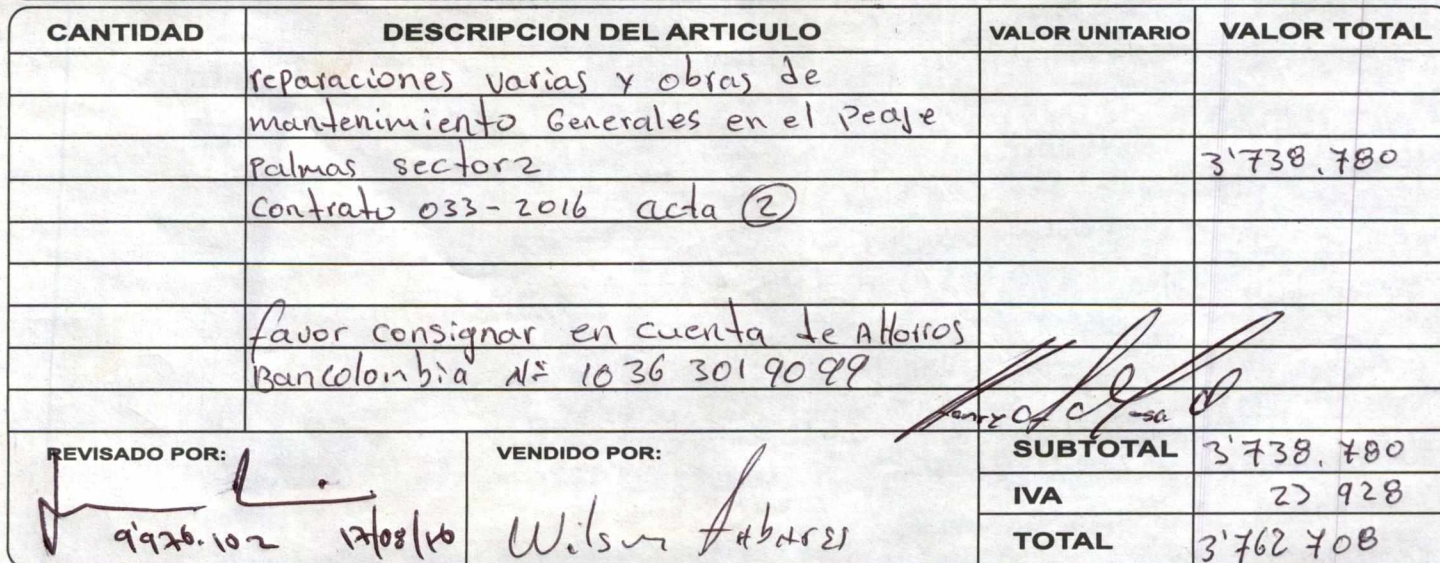 CANTIDAD DESCRIPCION DEL ARTICULO VALOR UNITARIO VALOR TOTAL
reparaciones varias y obras de
mantenimiento Generales en el Peaje
Palmas sector2 3'738.780
Contrato 033-2016 acta 2
favor consignar en cuenta de AHorros
Bancolombia Nº 1036 301 90 99
REVISADO POR: VENDIDO POR: SUBTOTAL 3'738.780
IVA 23 928
9'976.102 17/08/16 Wilson TOTAL 3'762 708